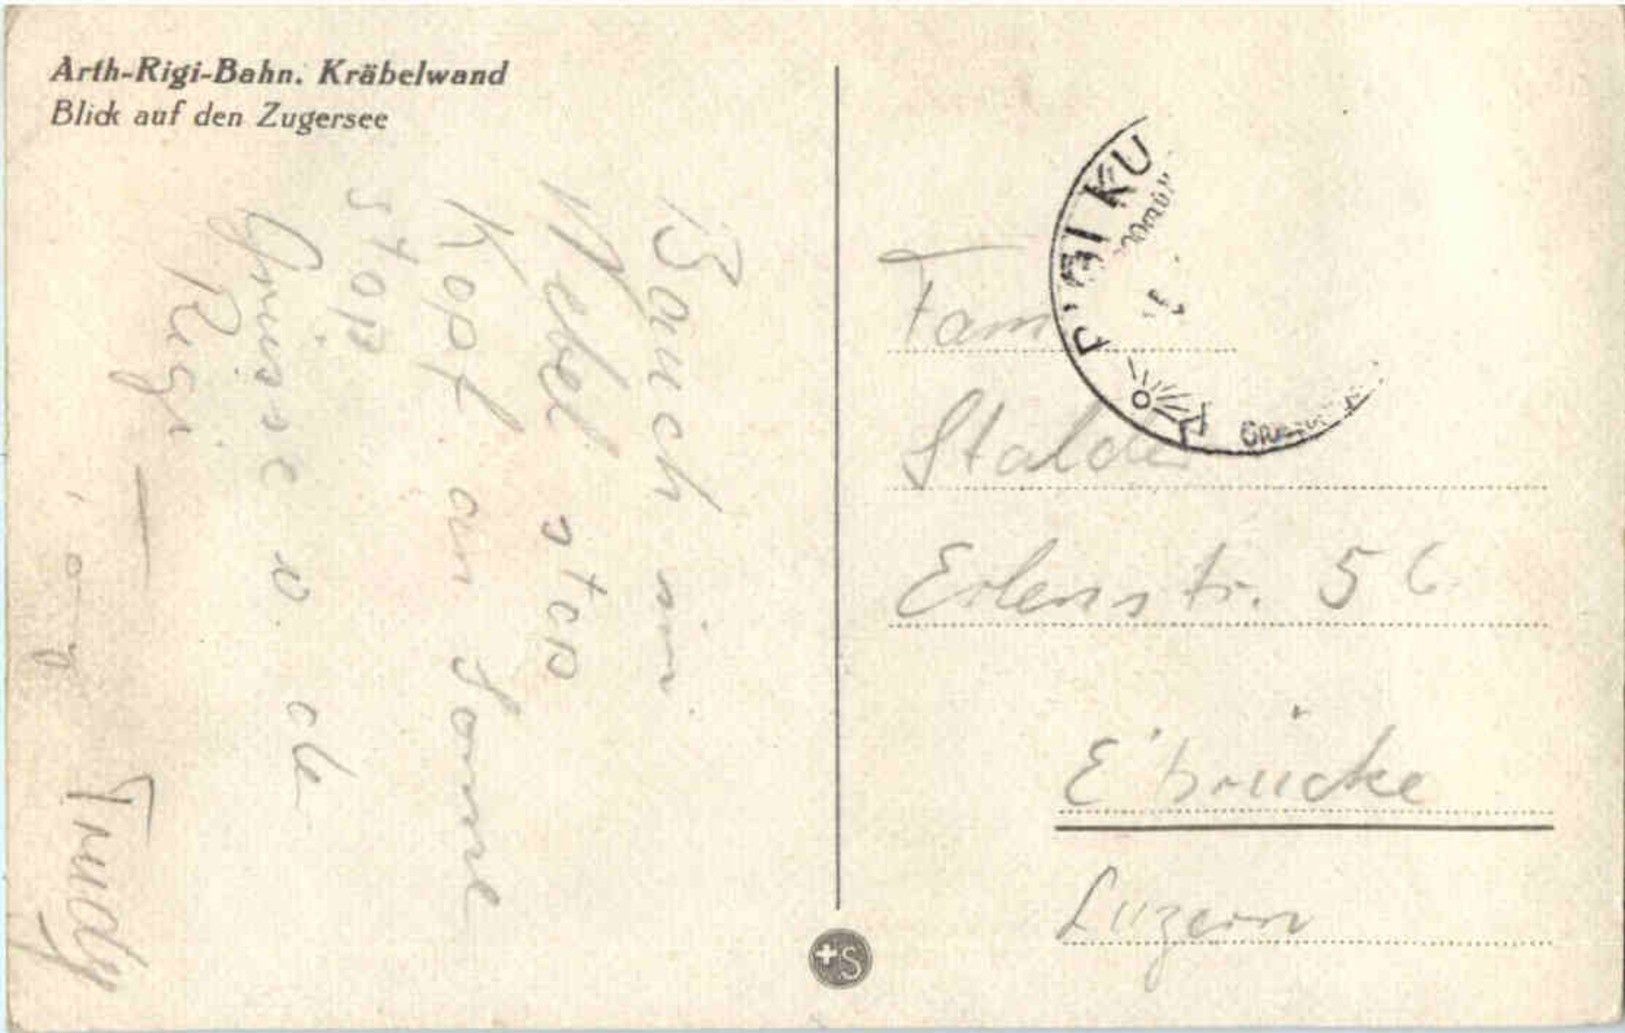 Arth-Rigi-Bahn. Kräbelwand
Blick auf den Zugersee
Bauch im
Nebel stop
Kopf an Sonne
stop
Grüsse v. de
Rigi
Trudy
RIGI KU
Fam
Stalder
Erlenstr. 56
E'brücke
Luzern
+S